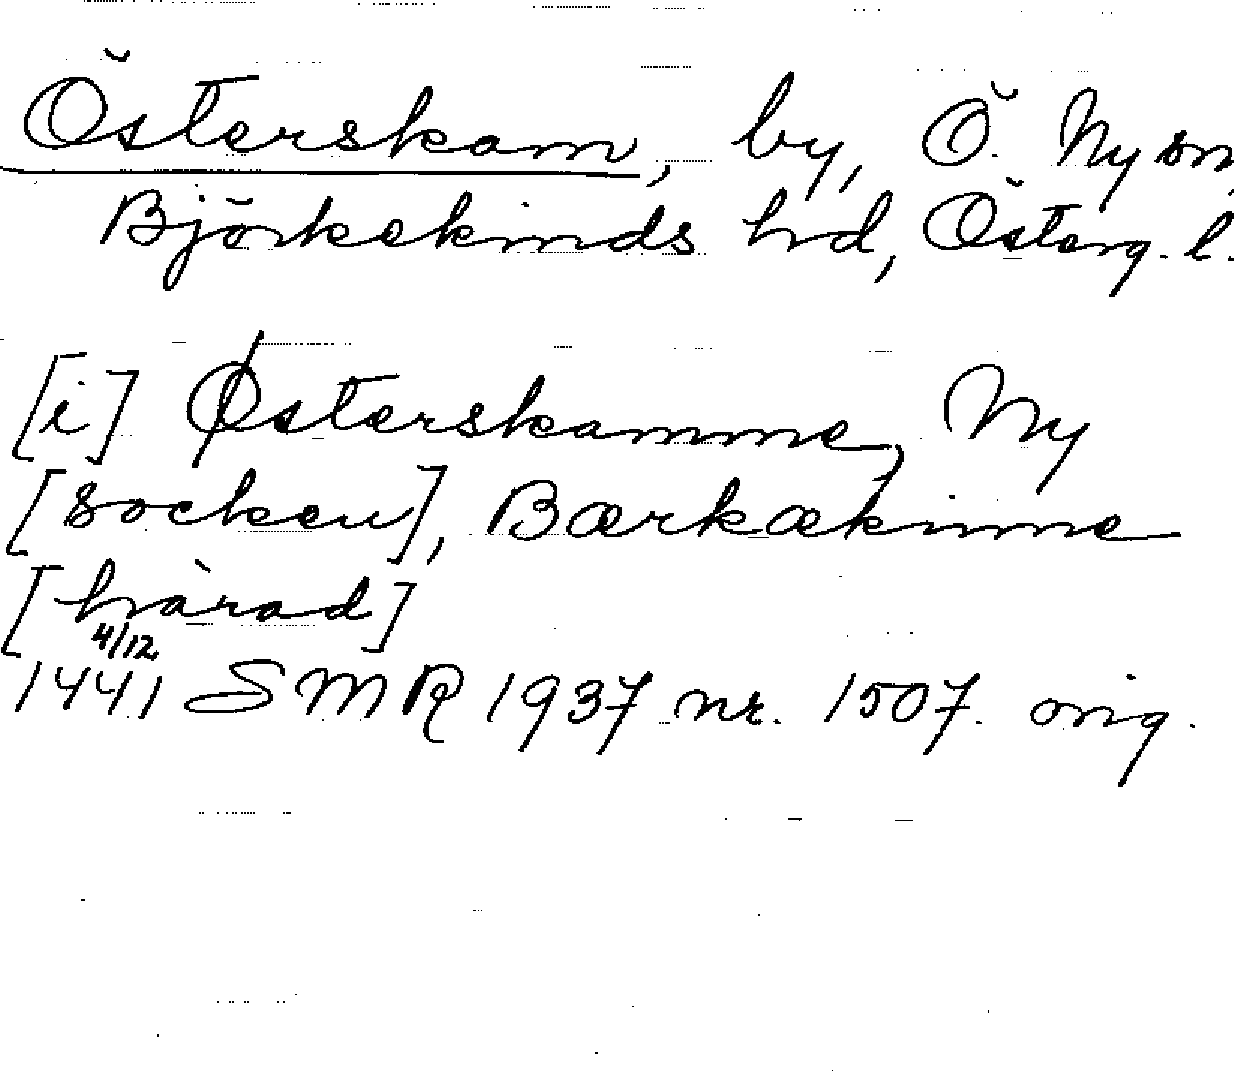 Österskam, by, Ö. Ny sn,
Björkekinds hd, Österg. l.
[i] Østerskamme, Ny
[socken], Bærkækinne
[härad]
4/12
1441 SMR 1937 nr. 1507. orig.